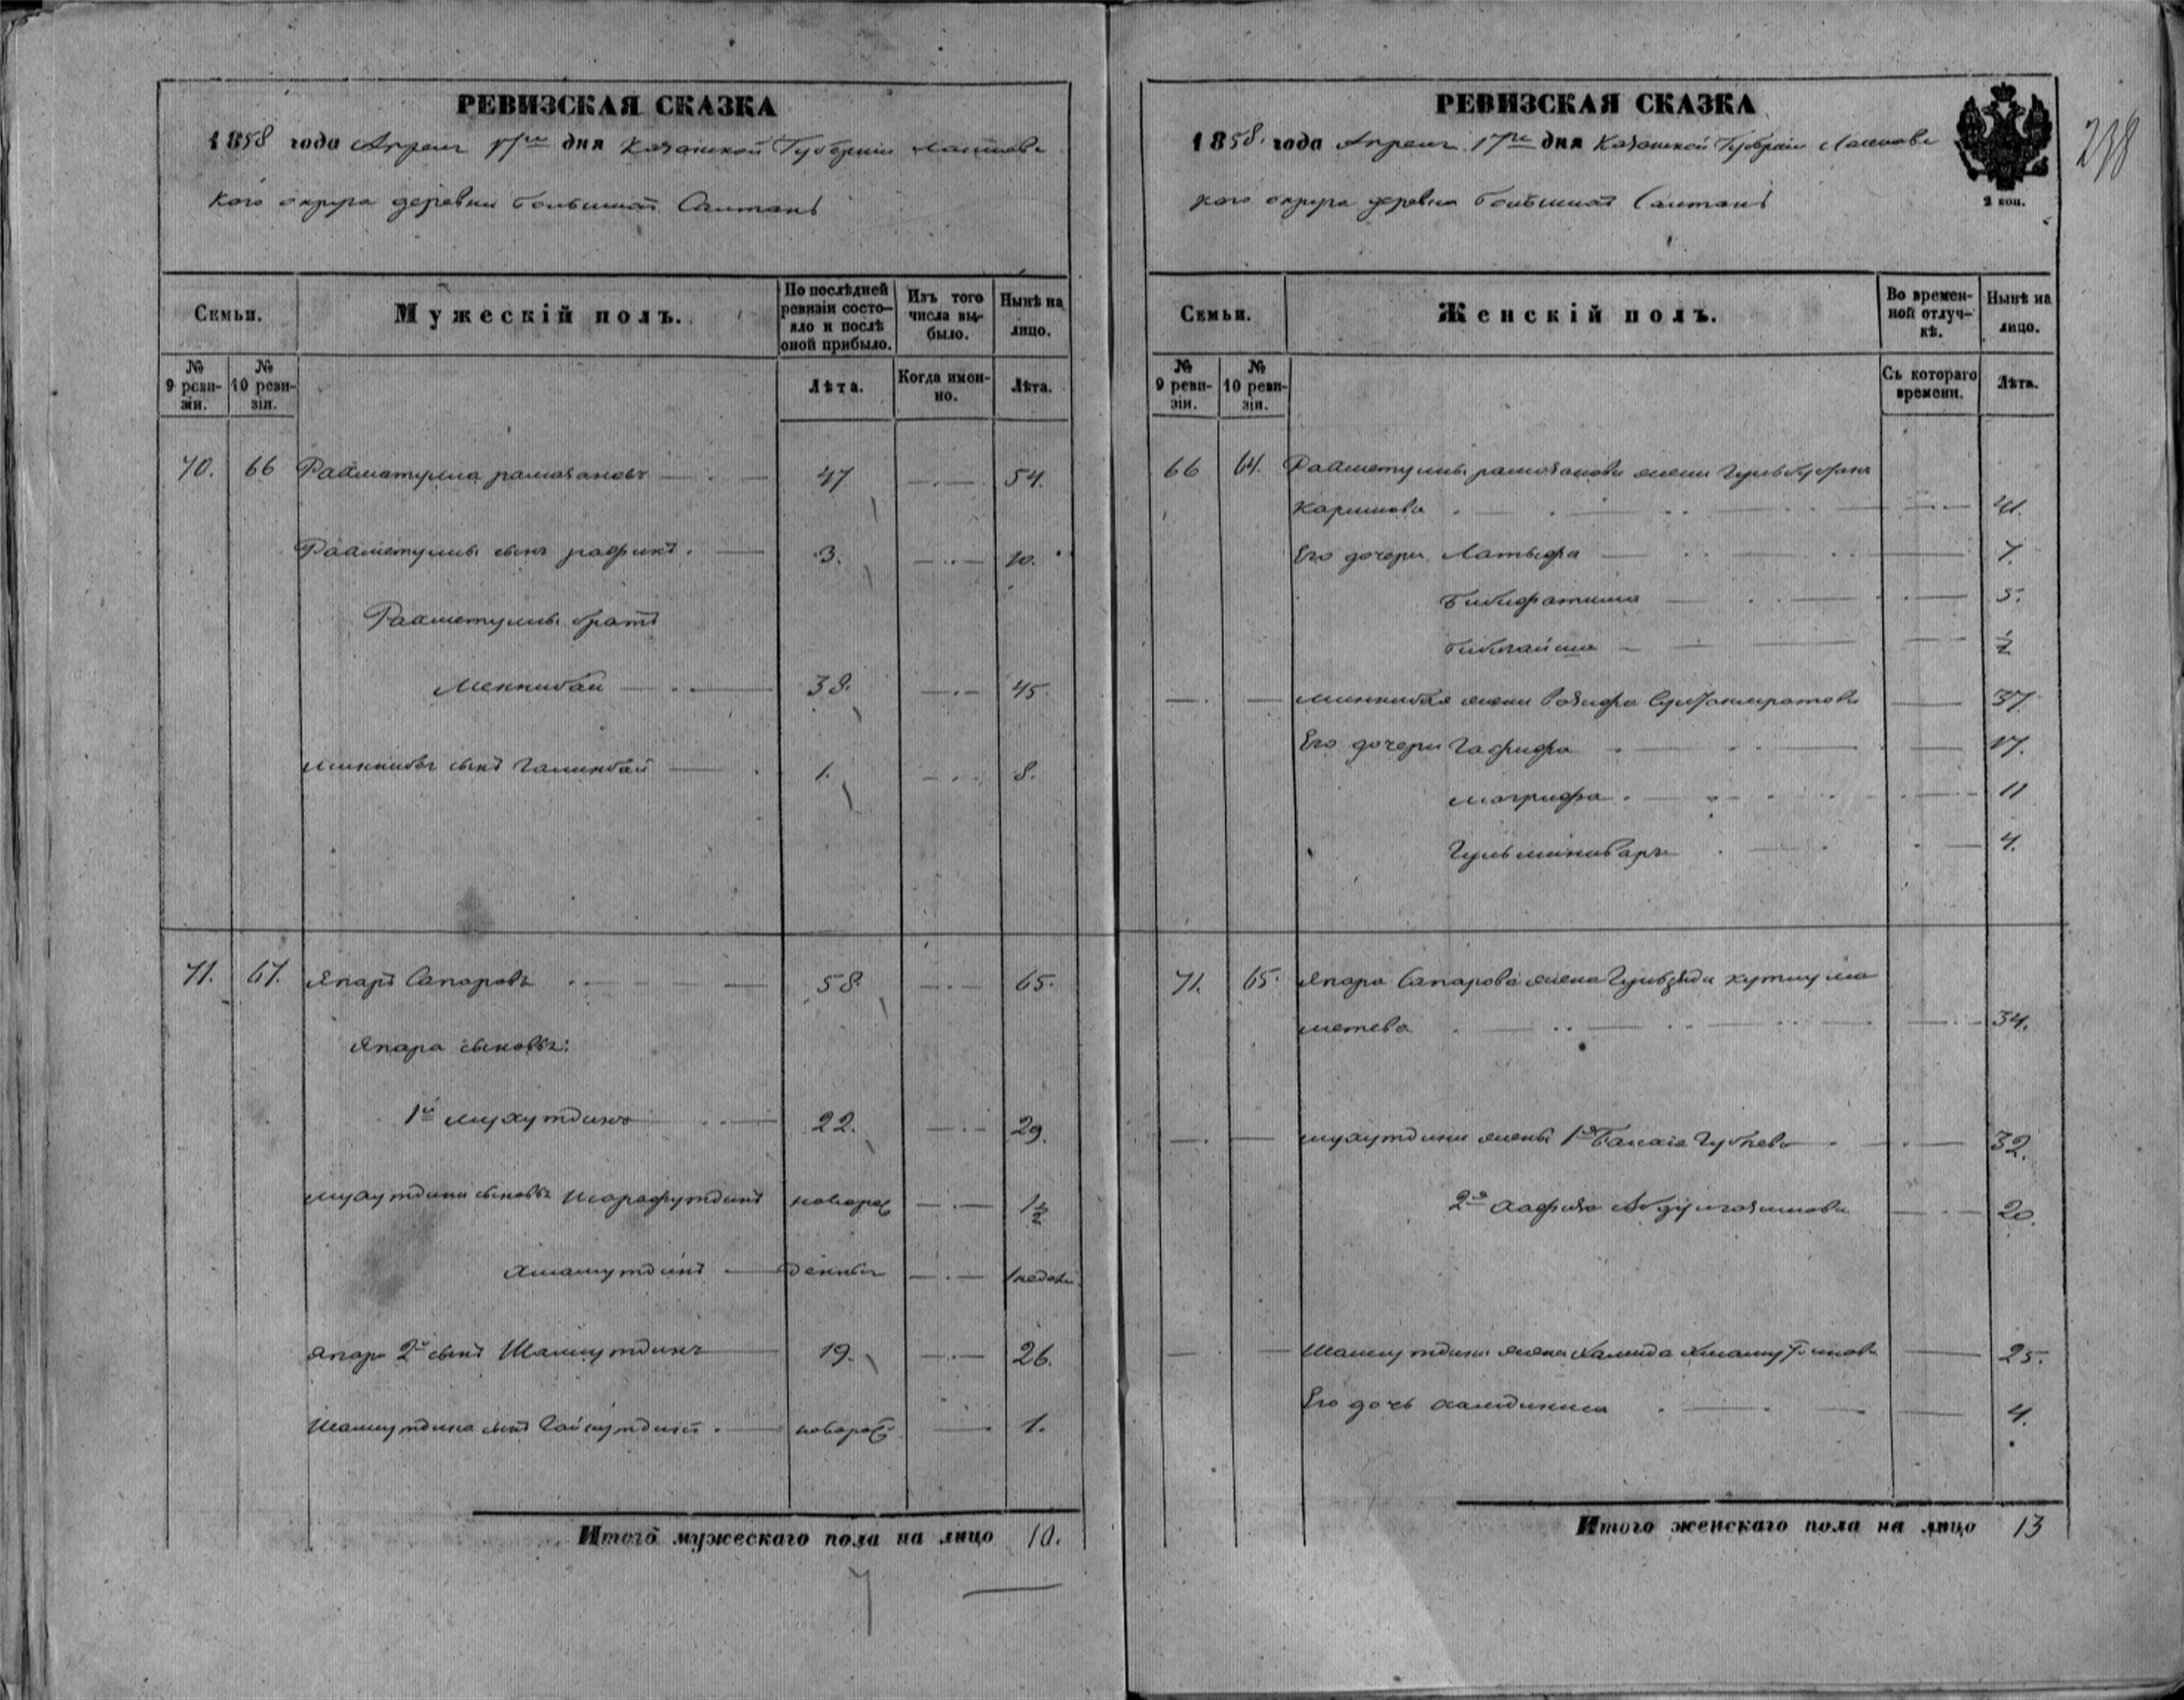 РЕВИЗСКАЯ СКАЗКА
1858 года Апреля 17го дня Казанской Губерніи Лаишевс
кого округа деревни Большихъ Салтанъ
Семьи.
Мужескій полъ.
По послѣдней ревизіи состояло и послѣ оной прибыло.
Изъ того числа выбыло.
Нынѣ на лицо.
№ 9 ревизіи.
№ 10 ревизіи.
Лѣта.
Когда именно.
Лѣта.
70. 66 Рахматулла рамазановъ 47 54.
Рахметуллы сынъ рафикъ. 3. 10.
Рахметуллы братъ
Меннибай 38. 45.
Миннибая сынъ Галинбай 1. 8.
71. 67. Япаръ Сапаровъ 58. 65.
Япара сыновья:
1й мухутдинъ 22. 29.
мухутдина сыновья Шарафутдинъ новорож 1½
Хисамутдинъ денные 1 недели
Япара 2й сынъ Шамсутдинъ 19. 26.
Шамсутдина сынъ Гайнутдинъ. новорож 1.
Итого мужескаго пола на лицо 10.
7
РЕВИЗСКАЯ СКАЗКА
1858. года Апреля 17го дня Казанской Губерніи Лаишевс
кого округа деревни Большихъ Салтанъ
2 коп.
238
Семьи.
Женскій полъ.
Во временной отлучкѣ.
Нынѣ на лицо.
№ 9 ревизіи.
№ 10 ревизіи.
Съ котораго времени.
Лѣта.
66 64. Рахметуллы рамазанова жена
Каримова 41.
Его дочери Латыфа 7.
Бибифатима 5.
Бибиайша ½
Миннибая жена 37.
Его дочери Гафифа 17.
Магрифа. 11
Гульминивара 4.
71. 65. Япара Сапарова жена Гульзяда кутлума
метева 34.
мухутдина жены 1я 32.
2я Хафиза 20.
Шамсутдина жена Хамида Хисамутдинова 25.
Его дочь 4.
Итого женскаго пола на лицо 13